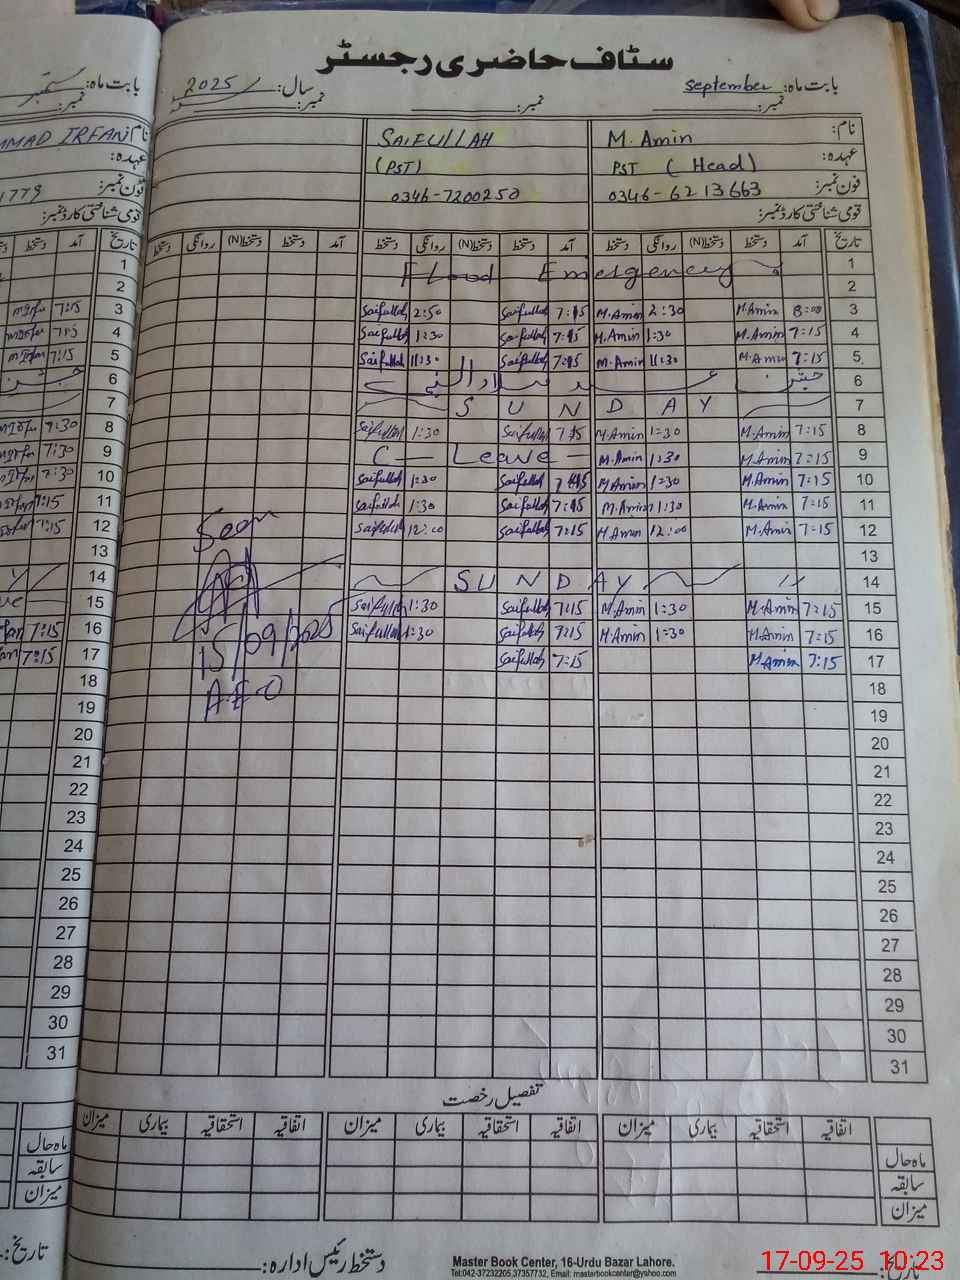 سٹاف حاضری رجسٹر
بابت ماہ: September سال: 2025
نمبر: نمبر: نمبر:
نام: M. Amin SAIFULLAH
عہدہ: PST (Head) (PST)
فون نمبر: 0346-6213663 0346-7200250
قومی شناختی کارڈ نمبر:
تاریخ آمد دستخط دستخط(N) روانگی دستخط آمد دستخط دستخط(N) روانگی دستخط آمد دستخط دستخط(N) روانگی دستخط
1 Flood Emergency
2
3 8:00 M.Amin 2:30 M.Amin 7:15 Saifullah 2:50 Saifullah
4 7:15 M.Amin 1:30 M.Amin 7:15 Saifullah 1:30 Saifullah
5 7:15 M.Amin 11:30 M.Amin 7:15 Saifullah 11:30 Saifullah
6 جشن عید میلادالنبی
7 SUNDAY
8 7:15 M.Amin 1:30 M.Amin 7:15 Saifullah 1:30 Saifullah
9 7:15 M.Amin 1:30 M.Amin C — Leave —
10 7:15 M.Amin 1:30 M.Amin 7:15 Saifullah 1:30 Saifullah
11 7:15 M.Amin 1:30 M.Amin 7:15 Saifullah 1:30 Saifullah
12 7:15 M.Amin 12:00 M.Amin 7:15 Saifullah 12:00 Saifullah
13
14 SUNDAY
15 7:15 M.Amin 1:30 M.Amin 7:15 Saifullah 1:30 Saifullah
16 7:15 M.Amin 1:30 M.Amin 7:15 Saifullah 1:30 Saifullah
17 7:15 M.Amin 7:15 Saifullah
18
19
20
21
22
23
24
25
26
27
28
29
30
31
Seen
15/09/2025
A.E.O
تفصیل رخصت
اتفاقیہ استحقاقیہ بیماری میزان اتفاقیہ استحقاقیہ بیماری میزان اتفاقیہ استحقاقیہ بیماری میزان
ماہ حال
سابقہ
میزان
تاریخ: دستخط رئیس ادارہ:
Master Book Center, 16-Urdu Bazar Lahore.
Tel:042-37232205,37357732, Email: masterbookcenter@yahoo.com
17-09-25 10:23
بابت ماہ: ستمبر
نمبر:
نام MMAD IRFAN
عہدہ:
فون نمبر: 1779
قومی شناختی کارڈ نمبر:
تاریخ آمد دستخط
1
2
3 7:15
4 7:15
5 7:15
6 جشن
7
8 7:30
9 7:30
10 7:30
11 7:15
12 7:15
13
14
15
16 7:15
17 7:15
18
19
20
21
22
23
24
25
26
27
28
29
30
31
ماہ حال
سابقہ
میزان
تاریخ: